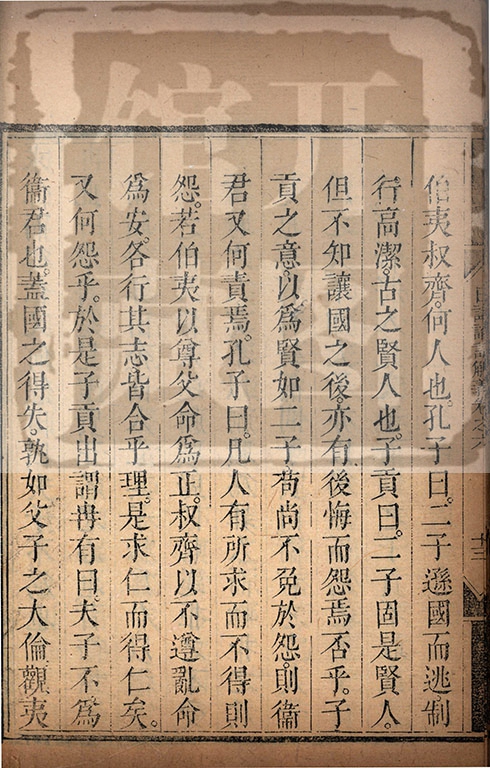 伯夷叔齊。何人也。孔子曰。二子遜國而逃。制
行高潔。古之賢人也。子貢曰。二子固是賢人。
但不知讓國之後。亦有後悔而怨焉否乎。子
貢之意。以爲賢如二子。苟尚不免於怨。則衞
君又何責焉。孔子曰。凡人有所求而不得則
怨。若伯夷以尊父命爲正。叔齊以不遵亂命
爲安。各行其志。皆合乎理。是求仁而得仁矣。
又何怨乎。於是子貢出謂冉有曰。夫子不爲
衞君也。蓋國之得失。孰如父子之大倫。觀夷